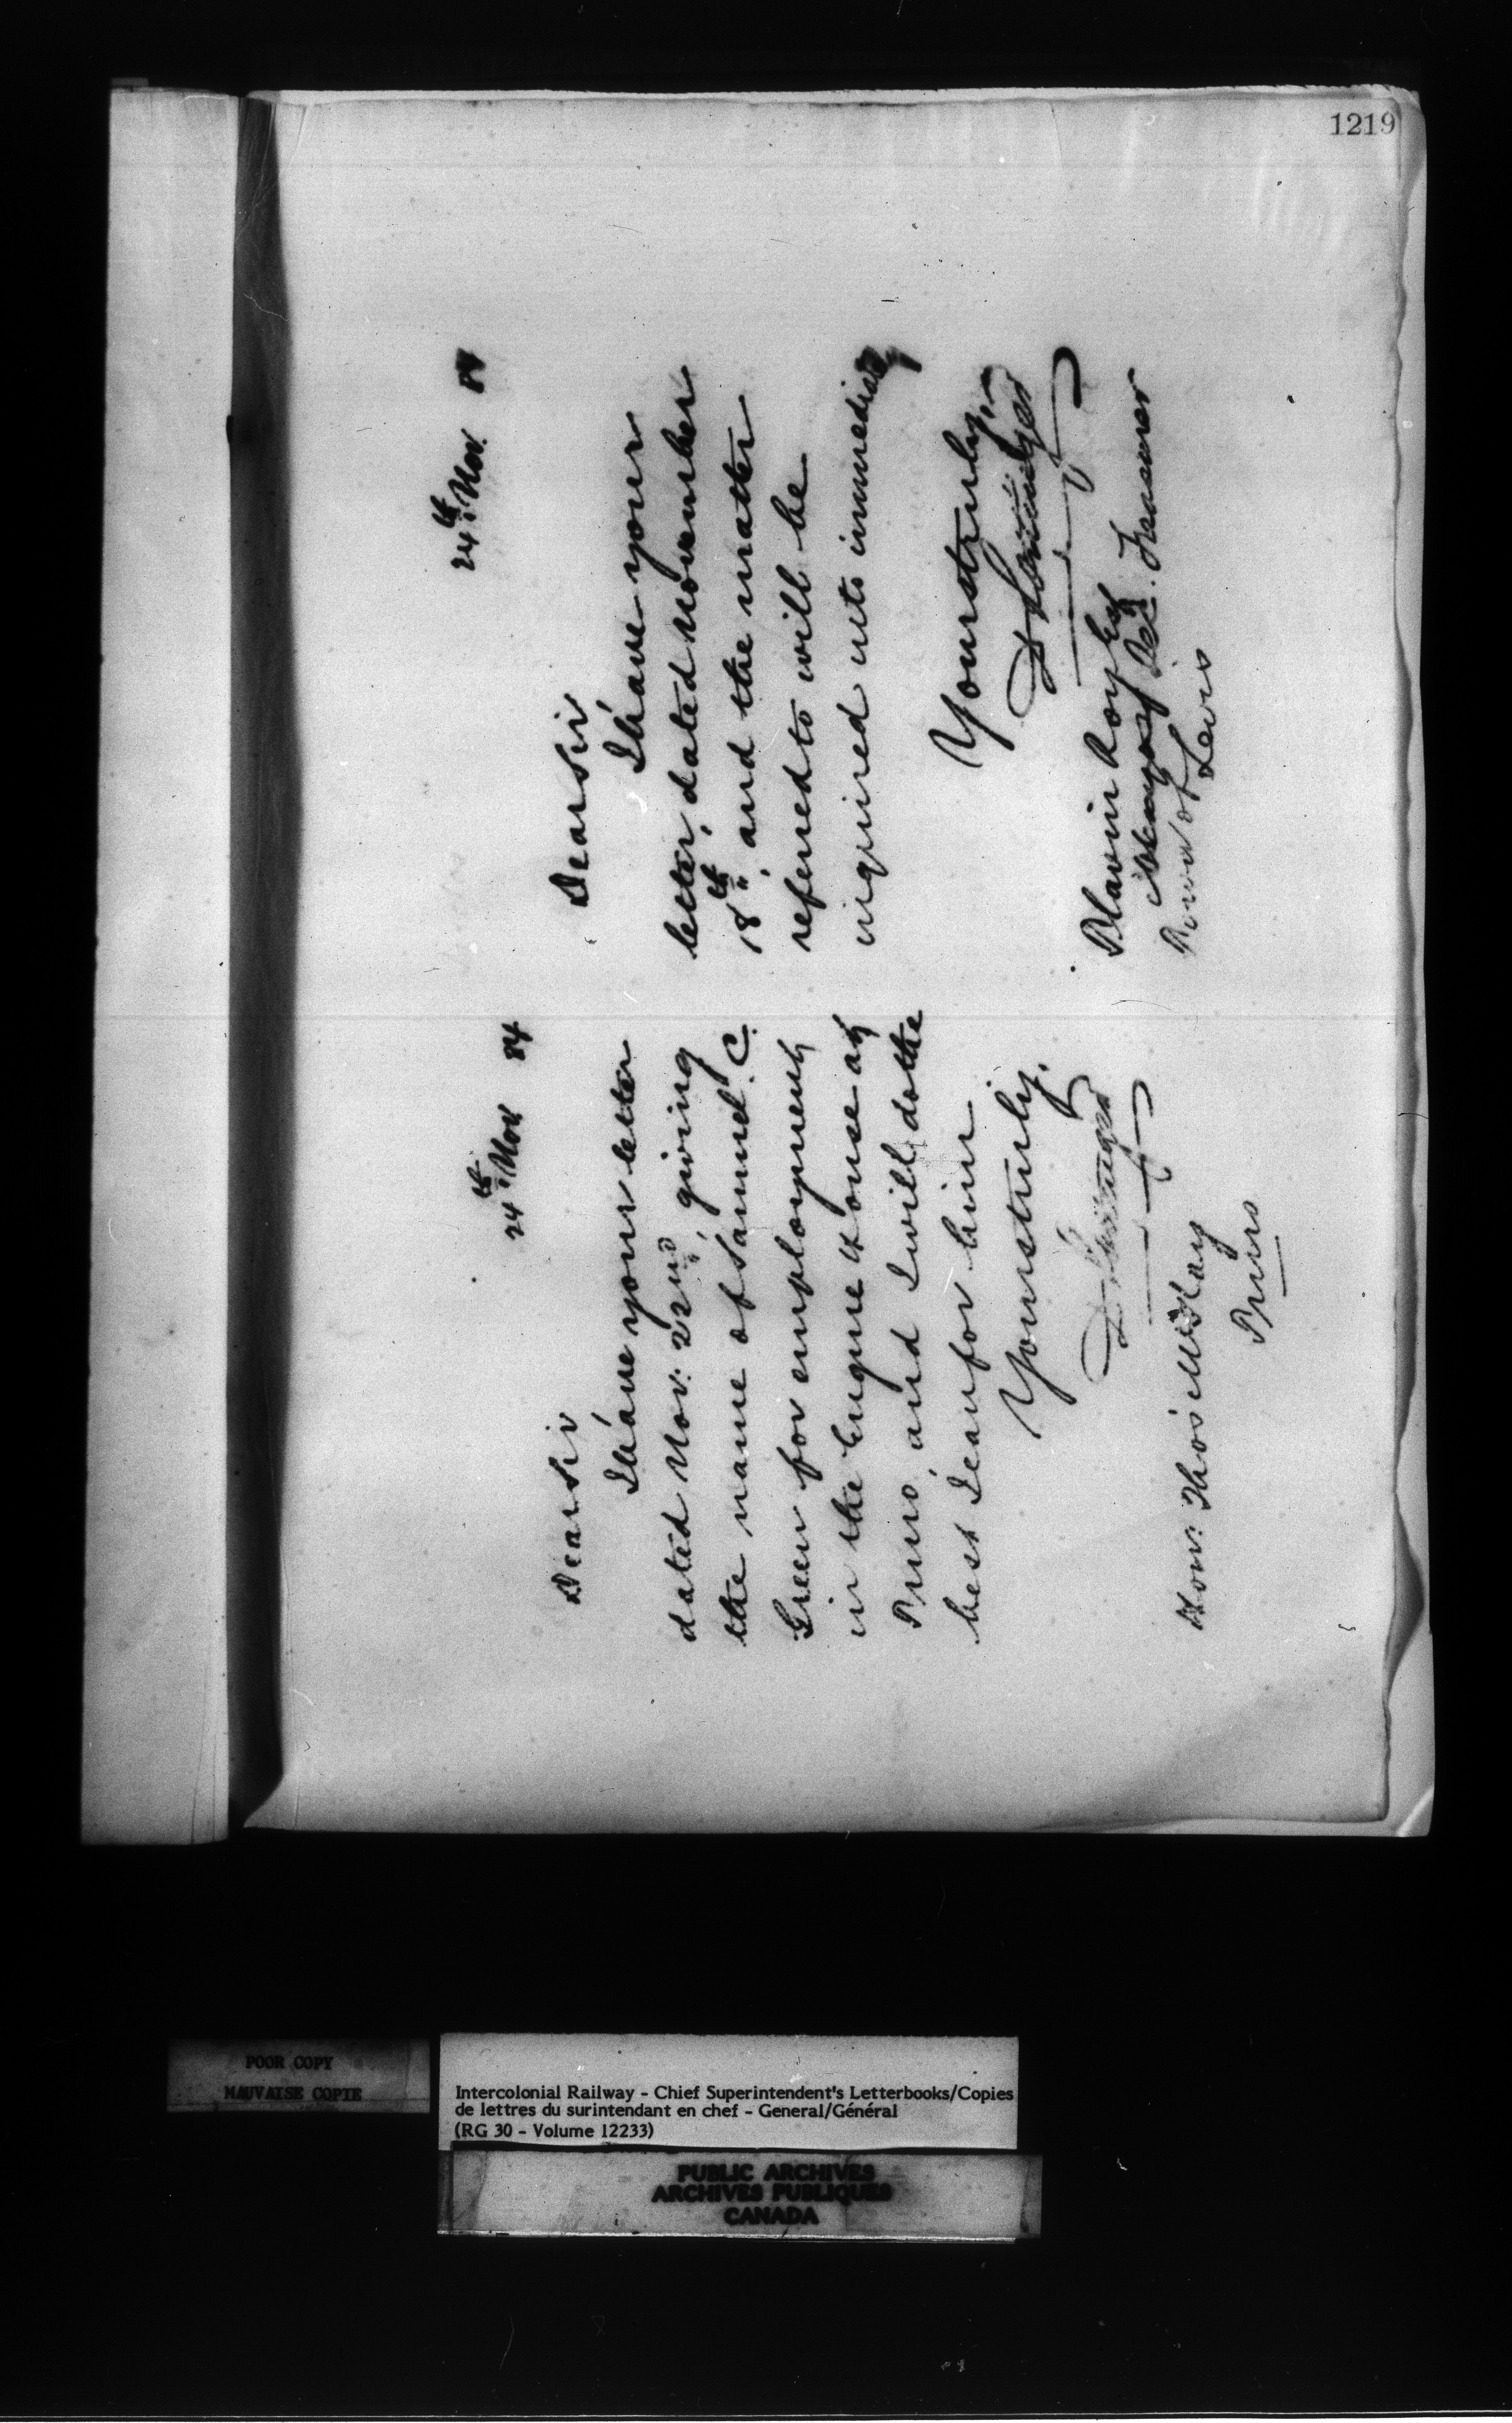 1219
24th Nov 84
Dear Sir
I have your letter
dated Nov: 22nd, giving
the name of Samuel C.
Green for employment
in the Engine House at
Truro, and I will do the
best I can for him
Yours truly,
D Pottinger
Hon: Thos McKay
Truro
24th Nov. 84
Dear Sir
I have your
letter, dated November
18th, and the matter
referred to will be
inquired into immediately
Yours truly,
D Pottinger
Roy Esq
Sec. Treasurer
Town of Levis
POOR COPY
MAUVAISE COPIE
Intercolonial Railway - Chief Superintendent's Letterbooks/Copies
de lettres du surintendant en chef - General/Général
(RG 30 - Volume 12233)
PUBLIC ARCHIVES
ARCHIVES PUBLIQUES
CANADA